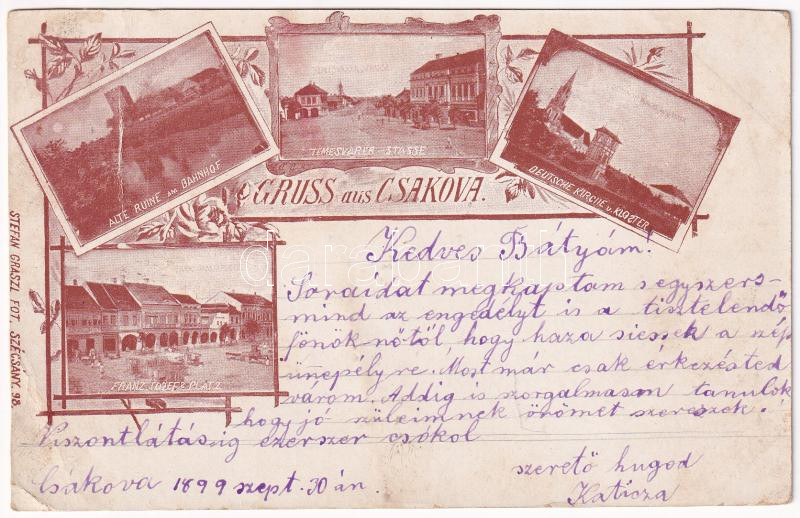 ALTE RUINE AM BAHNHOF
TEMESVARER - STASSE
DEUTSCHE KIRCHE u. KLOSTER
GRUSS aus CSAKOVA.
FRANZ JOZEFS PLATZ
STEFAN GRASZL FOT. SZÉCSANY. 98.
Kedves Bátyám!
Soraidat megkaptam s egyszers-
mind az engedélyt is a tisztelendő
főnöknőtől, hogy haza siessek a szép
ünnepélyre. Most már csak érkezésted
várom. Addig is szorgalmasan tanulok
hogy jó szüleimnek örömet szerezzek.
Viszontlátásig ezerszer csókol
szerető hugod
Katicza
Csákova 1899 szept. 30 án.
darabanth